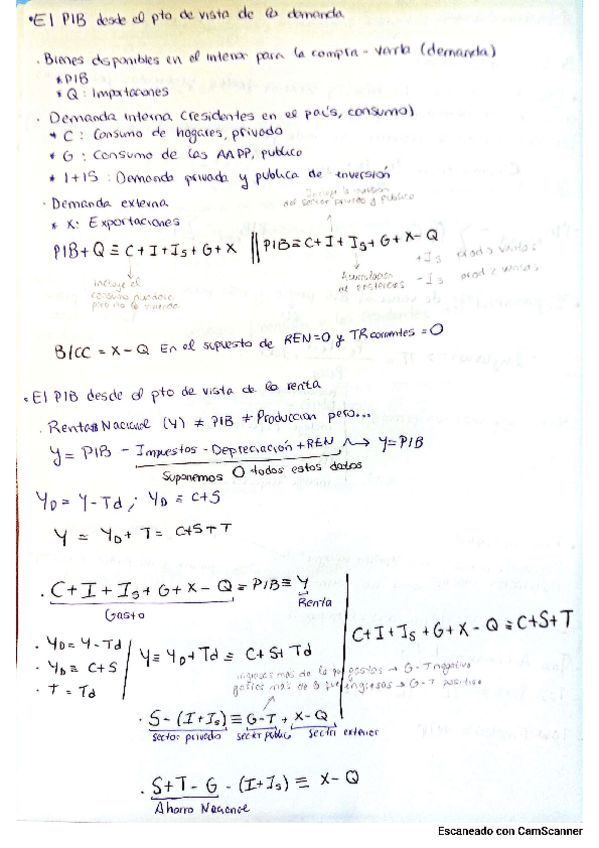 • El PIB desde el pto de vista de la demanda
. Bienes disponibles en el interior para la compra-venta (demanda)
* PIB
* Q : Importaciones
. Demanda interna (residentes en el país, consumo)
* C : Consumo de hogares, privado
* G : Consumo de las AAPP, publico
* I+IS : Demanda privada y publica de inversión
Incluye la inversión
del sector privado y público
. Demanda externa
* X: Exportaciones
PIB+Q ≡ C+I+Is+G+X || PIB≡C+I+Is+G+X-Q
+Is prod > ventas
-Is prod < ventas
Incluye el
consumo
pero no la vivienda
Acumulación
de existencias
B/CC = X-Q En el supuesto de REN=0 y TRcorrientes=0
• El PIB desde el pto de vista de la renta
. Renta Nacional (Y) ≠ PIB ≠ Producción pero...
Y = PIB - Impuestos - Depreciación + REN ⟿ Y=PIB
Suponemos 0 todos estos datos
YD = Y-Td ; YD ≡ C+S
Y = YD + T = C+S+T
. C+I+Is+G+X-Q ≡ PIB ≡ Y
Gasto Renta
C+I+Is+G+X-Q ≡ C+S+T
. YD = Y-Td
. YD ≡ C+S
. T = Td
Y ≡ YD+Td ≡ C+S+Td
ingresas más de lo que gastas → G-T negativo
gastas más de lo que ingresas → G-T positivo
. S-(I+Is) ≡ G-T + X-Q
sector privado sector público sector exterior
. S+T-G-(I+Is) ≡ X-Q
Ahorro Nacional
Escaneado con CamScanner